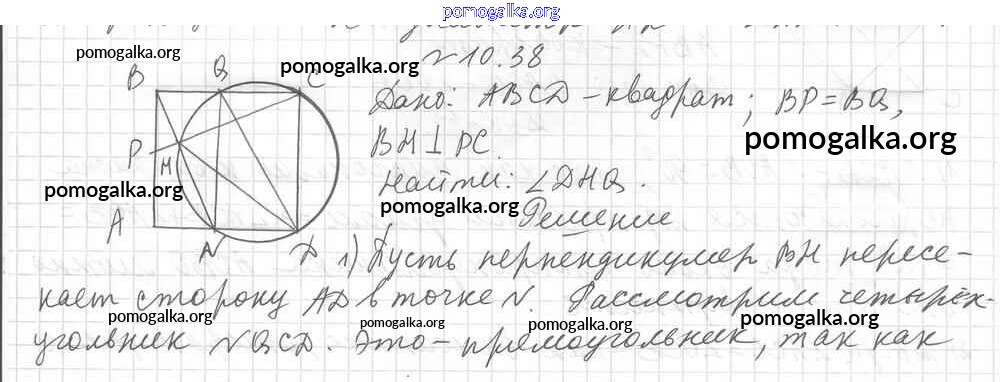 pomogalka.org
№10.38
pomogalka.org
pomogalka.org
B Q C
Дано: ABCD - квадрат; BP=BQ,
BH⊥PC.
pomogalka.org
P H
Найти: ∠DHQ.
pomogalka.org
pomogalka.org
Решение
A N D
1) Пусть перпендикуляр BH пересе-
кает сторону AD в точке N. Рассмотрим четырёх-
pomogalka.org
pomogalka.org
pomogalka.org
pomogalka.org
угольник NQCD. Это - прямоугольник, так как